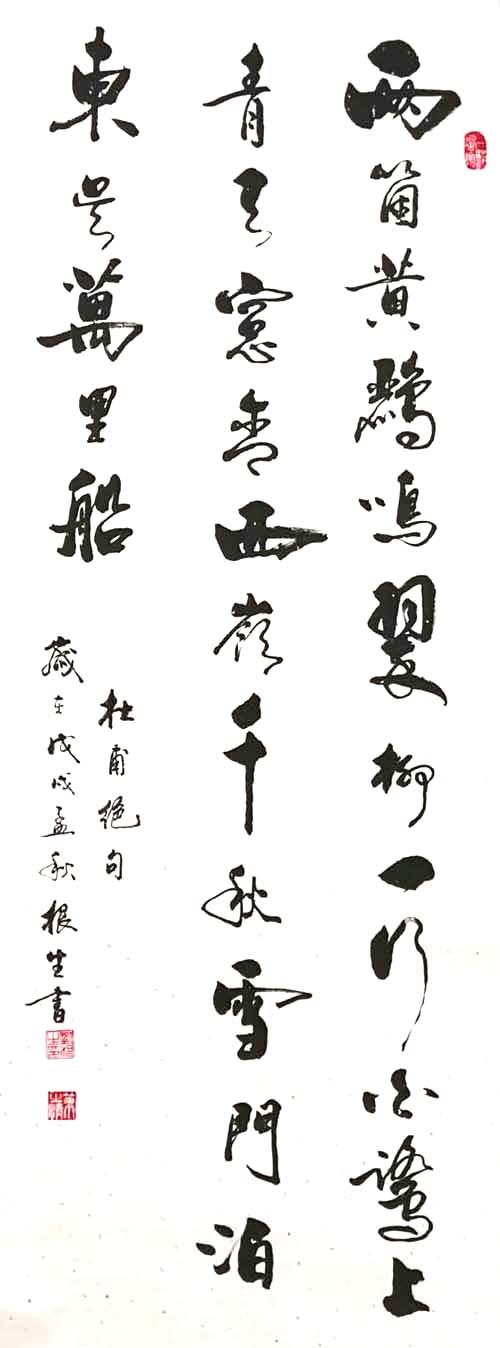 兩箇黃鸝鳴翠柳一行白鷺上
青天窓含西嶺千秋雪門泊
東吳萬里船
杜甫絕句
歲在戊戌孟秋根生書